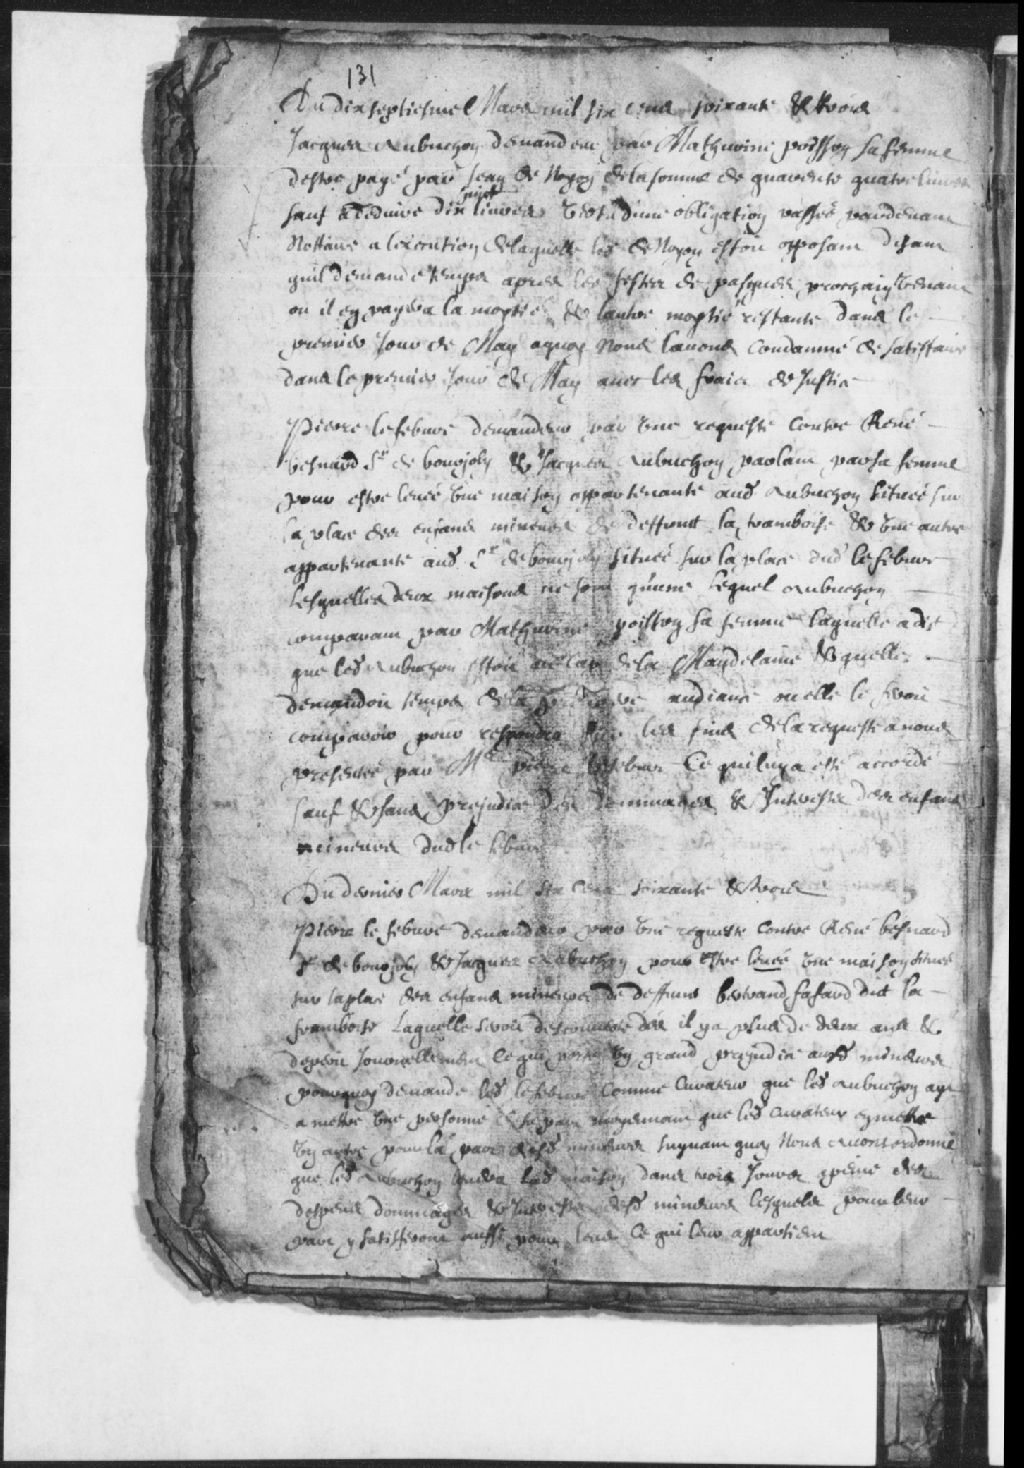 131
Du dix septiesme Mars mil six cens soixante & trois
Jacques Aubuchon demandeur par Mathurine poisson sa femme
destre payé par Jean de Noyon de la somme de quarente quatre livres
sauf a deduire dix huit livres dune obligation passée pardevant
Nottaire a lexecution de laquelle led de Noyon estoit opposant disant
quil demande temps apres les festes de pasques prochain venant
ou il en payera la moytié & lautre moytié restante dans le
premier Jour de May aquoy Nous lavons condamné de satisfaire
dans le premier Jour de May avec les fraicz de Justice
Pierre lefebvre demandeur par une requeste contre René
besnard Sr de bourjoly & Jacques Aubuchon parlant par sa femme
pour estre levée une maison appartenante aud Aubuchon située sur
la place des enfans mineurs de deffunt la framboise & une autre
appartenante aud Sr de bourjoly située sur la place dud lefebvre
Lesquelles deux maisons ne sont quune lequel Aubuchon
comparant par Mathurine poisson sa femme laquelle a dit
que led Aubuchon estoit au Cap de la Magdelaine & quelle
demandoit temps de la audiance ou elle le feroit
comparoir pour respondre les fins de la requeste a nous
presentée par Mr pierre lefebvre Ce qui luy a esté accordé
sauf & sans prejudice des dommages & Interestz des enfans
mineurs dud lefebvre
Du dernier Mars mil six cens soixante & trois
Pierre lefebvre demandeur par une requeste contre René besnard
Sr de bourjoly & Jacques Aubuchon pour estre levée une maison située
sur la place des enfans mineurs de deffunt bertrand fafard dit la
framboise Laquelle seroit descouverte dés il y a plus de deux ans &
deperit Journellement Ce qui porte un grand prejudice ausd mineurs
pourquoy demande led lefebvre comme Curateur que led Aubuchon aye
a mettre une personne de sa part moyennant que led curateur y mettra
un autre pour la part desd mineurs suyvant quoy Nous avons ordonné
que led Aubuchon levera lad maison dans trois Jours a peine des
despens dommages & Interestz desd mineurs lesquels pour leur
part y satisferont aussi pour leur Ce qui leur appartient